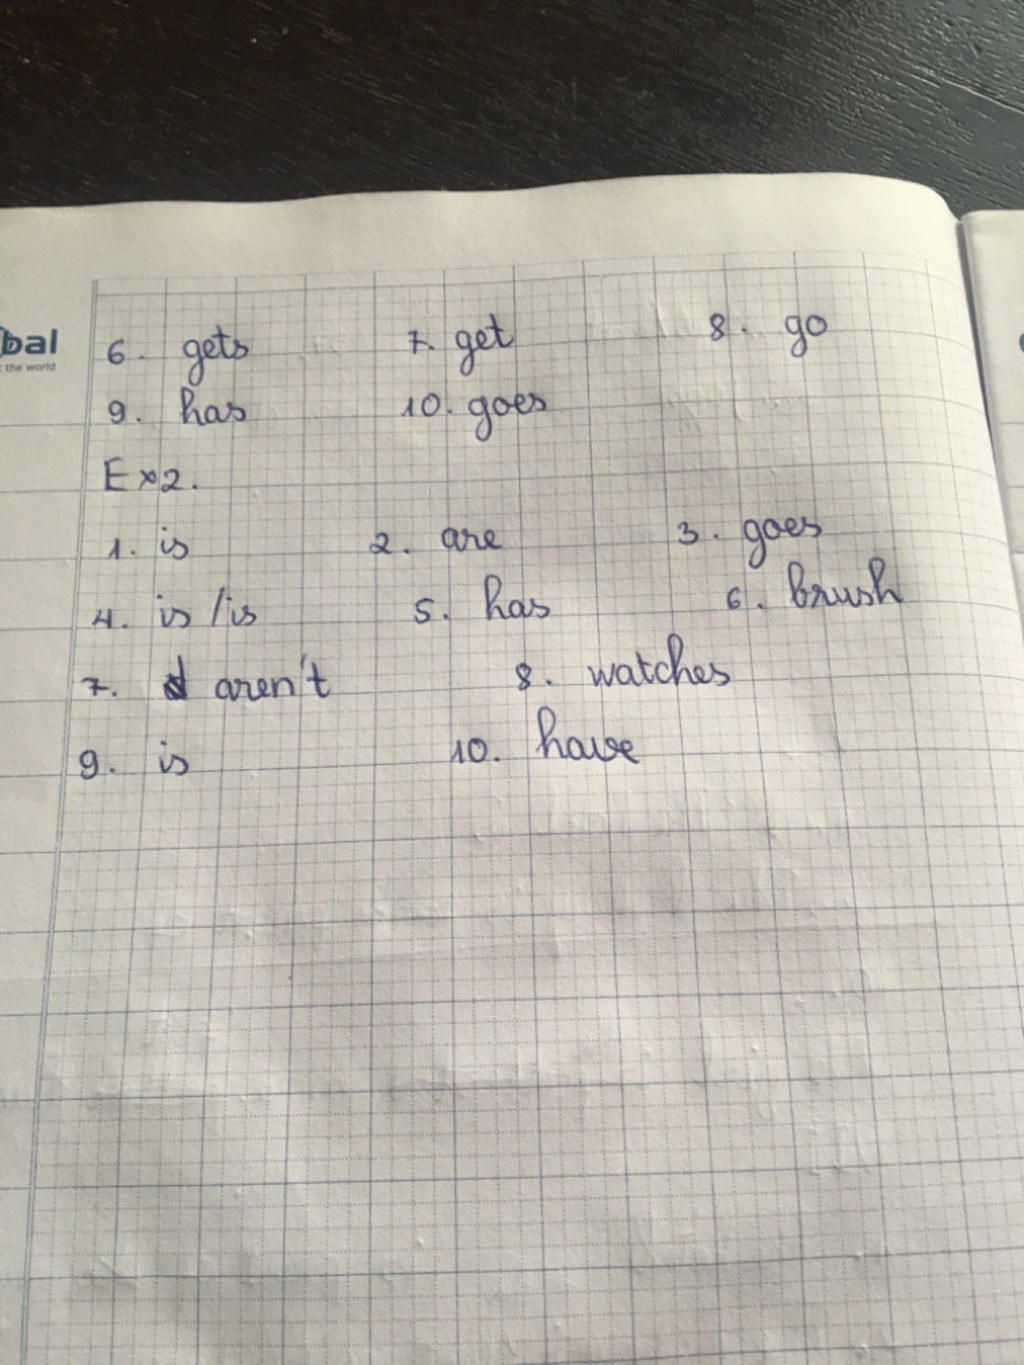 bal
the world
6. gets 7. get 8. go
9. has 10. goes
Ex2.
1. is 2. are 3. goes
4. is / is 5. has 6. brush
7. aren't 8. watches
9. is 10. have